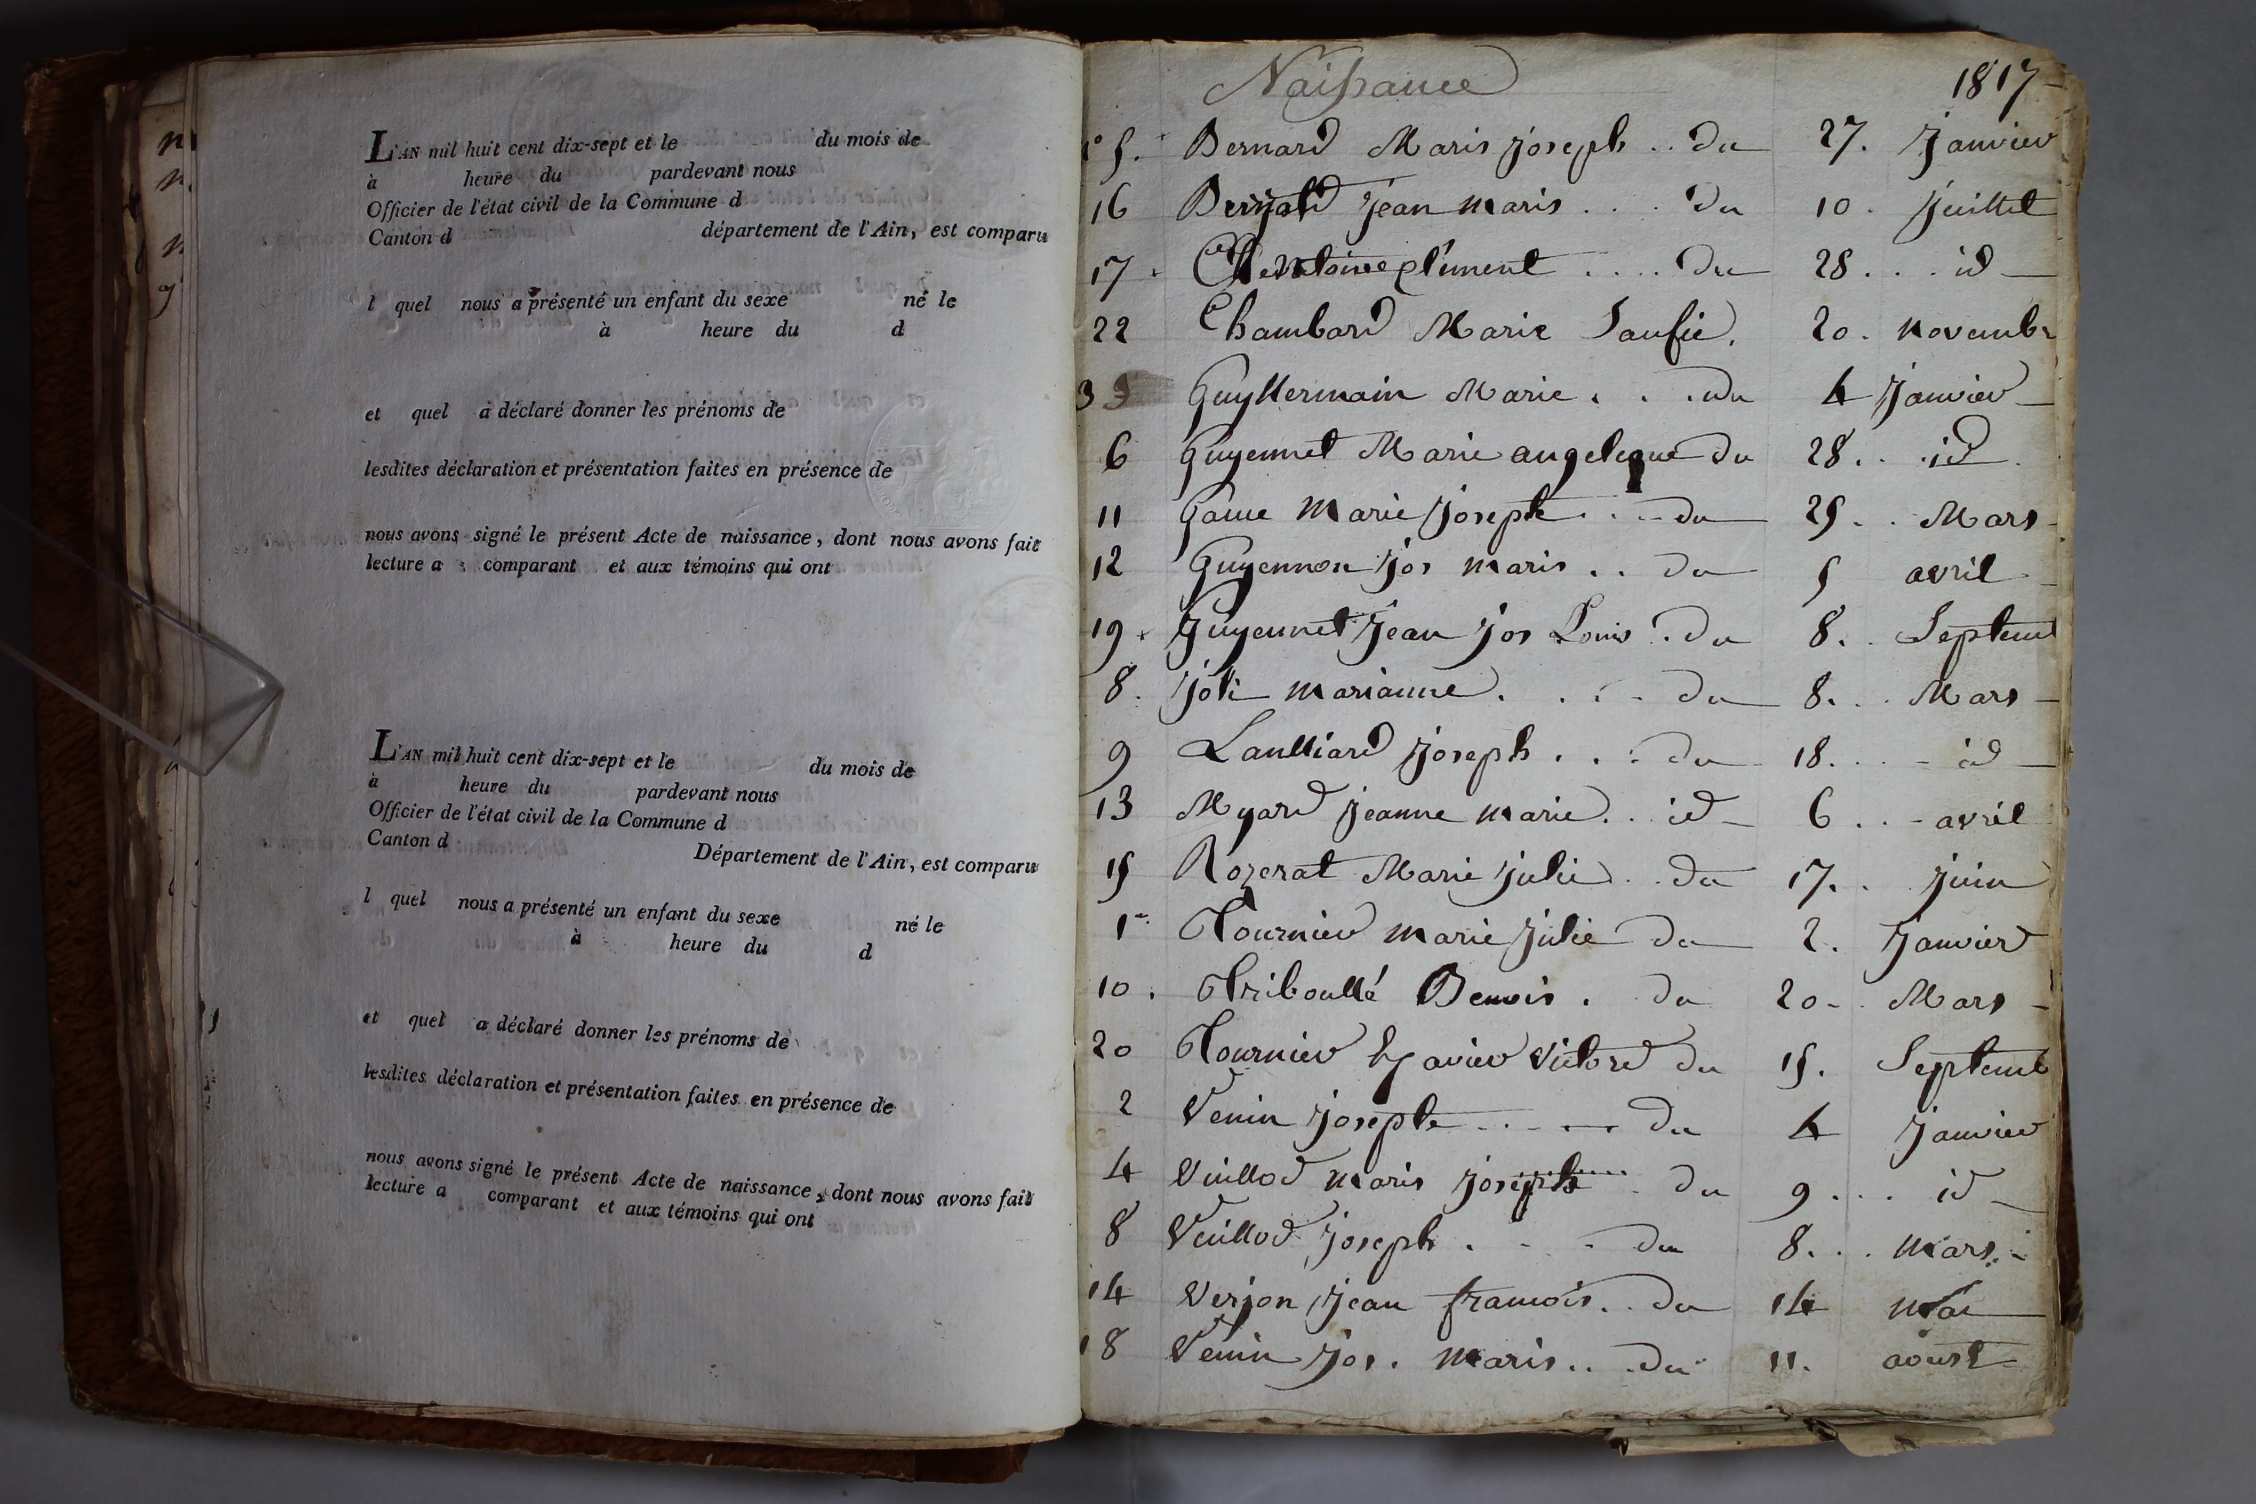 L'AN mil huit cent dix-sept et le du mois de
à heure du pardevant nous
Officier de l'état civil de la Commune d
Canton d département de l'Ain, est comparu
l quel nous a présenté un enfant du sexe né le
à heure du d
et quel a déclaré donner les prénoms de
lesdites déclaration et présentation faites en présence de
nous avons signé le présent Acte de naissance, dont nous avons fait
lecture a comparant et aux témoins qui ont
L'AN mil huit cent dix-sept et le du mois de
à heure du pardevant nous
Officier de l'état civil de la Commune d
Canton d Département de l'Ain, est comparu
l quel nous a présenté un enfant du sexe né le
à heure du d
et quel a déclaré donner les prénoms de
lesdites déclaration et présentation faites en présence de
nous avons signé le présent Acte de naissance, dont nous avons fait
lecture a comparant et aux témoins qui ont
Naissance 1817
5. Bernard Maris joseph .. du 27. Janvier
16 jean maris . . . du 10 . juillet
17 . clément .... du 28 . . . id
22 Chambard Marie Saufie. 20 . novembr
3 Guyllermain Marie . . . du 4 Janvier
6 Guyennet Marie angeleque du 28 . . id
11 Game Marie joseph . . . du 25 . . Mars
12 Guyennon jos maris . . du 5 avril
19 . Guyennet jean jos Louis . du 8 . . Septem
8 . joli marianne . . . . du 8 . . . Mars
9 Laulliard joseph . . . du 18 . . . id
13 Myard jeanne marie . . id 6 . . avril
15 Rozerat Marie julie . . du 17 . . juin
1er Tournier marie julie du 2 . Janvier
10 . Triboullé Benois . du 20 . Mars
20 Tournier Xavier victord du 15 . Septemb
2 Venin joseph . . . . du 4 Janvier
4 Vuillod maris joseph . . du 9 . . . id
8 Vuillod joseph . . . du 8 . . . mars
14 Verjon jean framois . . du 14 mai
18 Venin jos . maris . . . du 11 . aoust